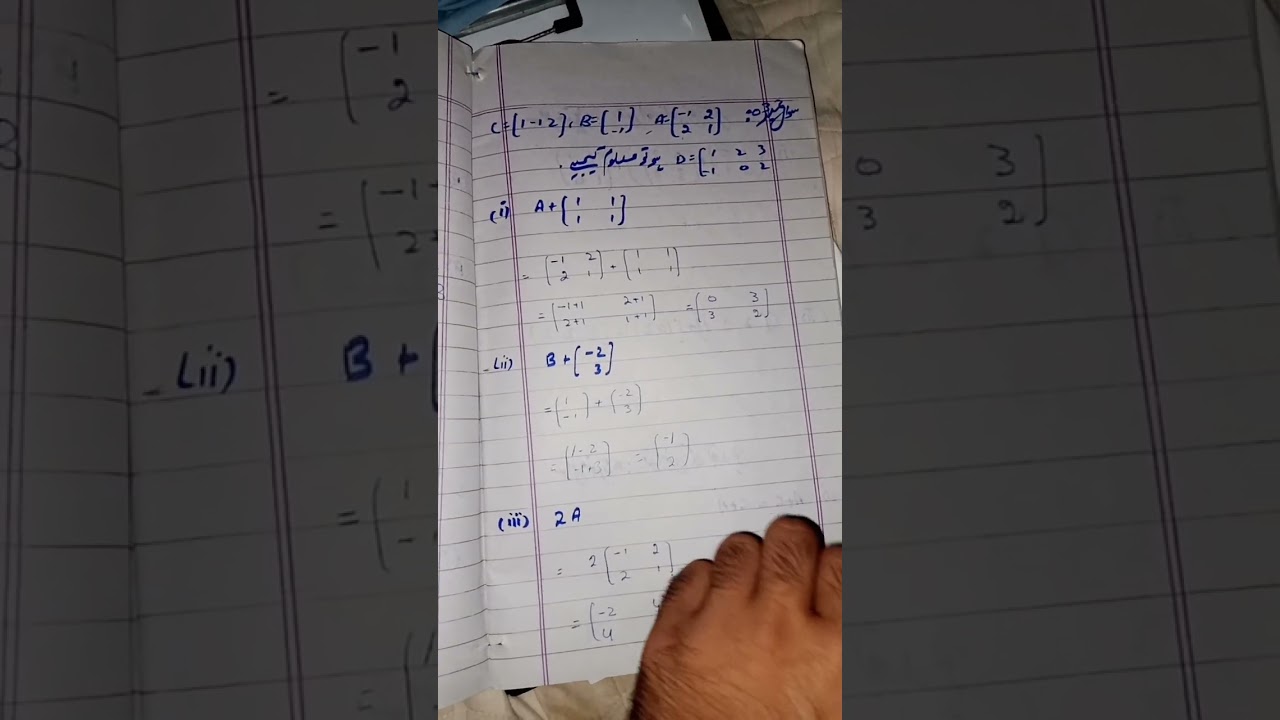 C=[1 -1 2], B=[1 -1], A=[-1 2 2 1]
ہو تو معلوم کیجیے D=[1 2 3 -1 0 2]
(i) A+[1 1 1 1]
= [-1 2 2 1] + [1 1 1 1]
= [-1+1 2+1 2+1 1+1] = [0 3 3 2]
(ii) B+[-2 3]
= [1 -1] + [-2 3]
= [1-2 -1+3] = [-1 2]
(iii) 2A
= 2 [-1 2 2 1]
= [-2 4 4